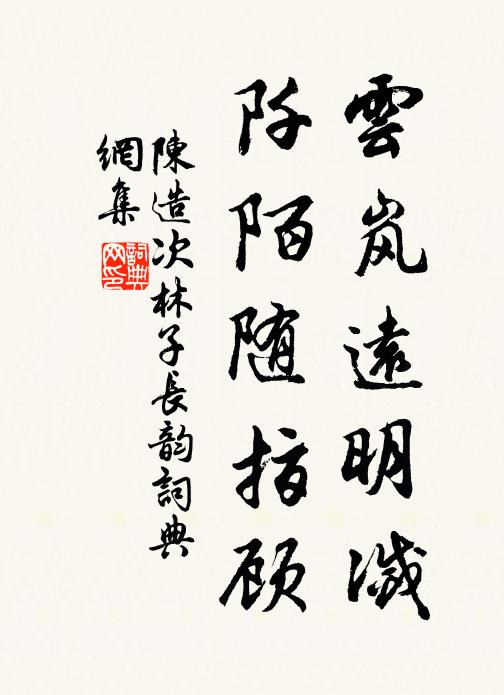 雲岚遠明滅
阡陌随指顾
陳造次林子長韵詞典
網集
詞典
网印